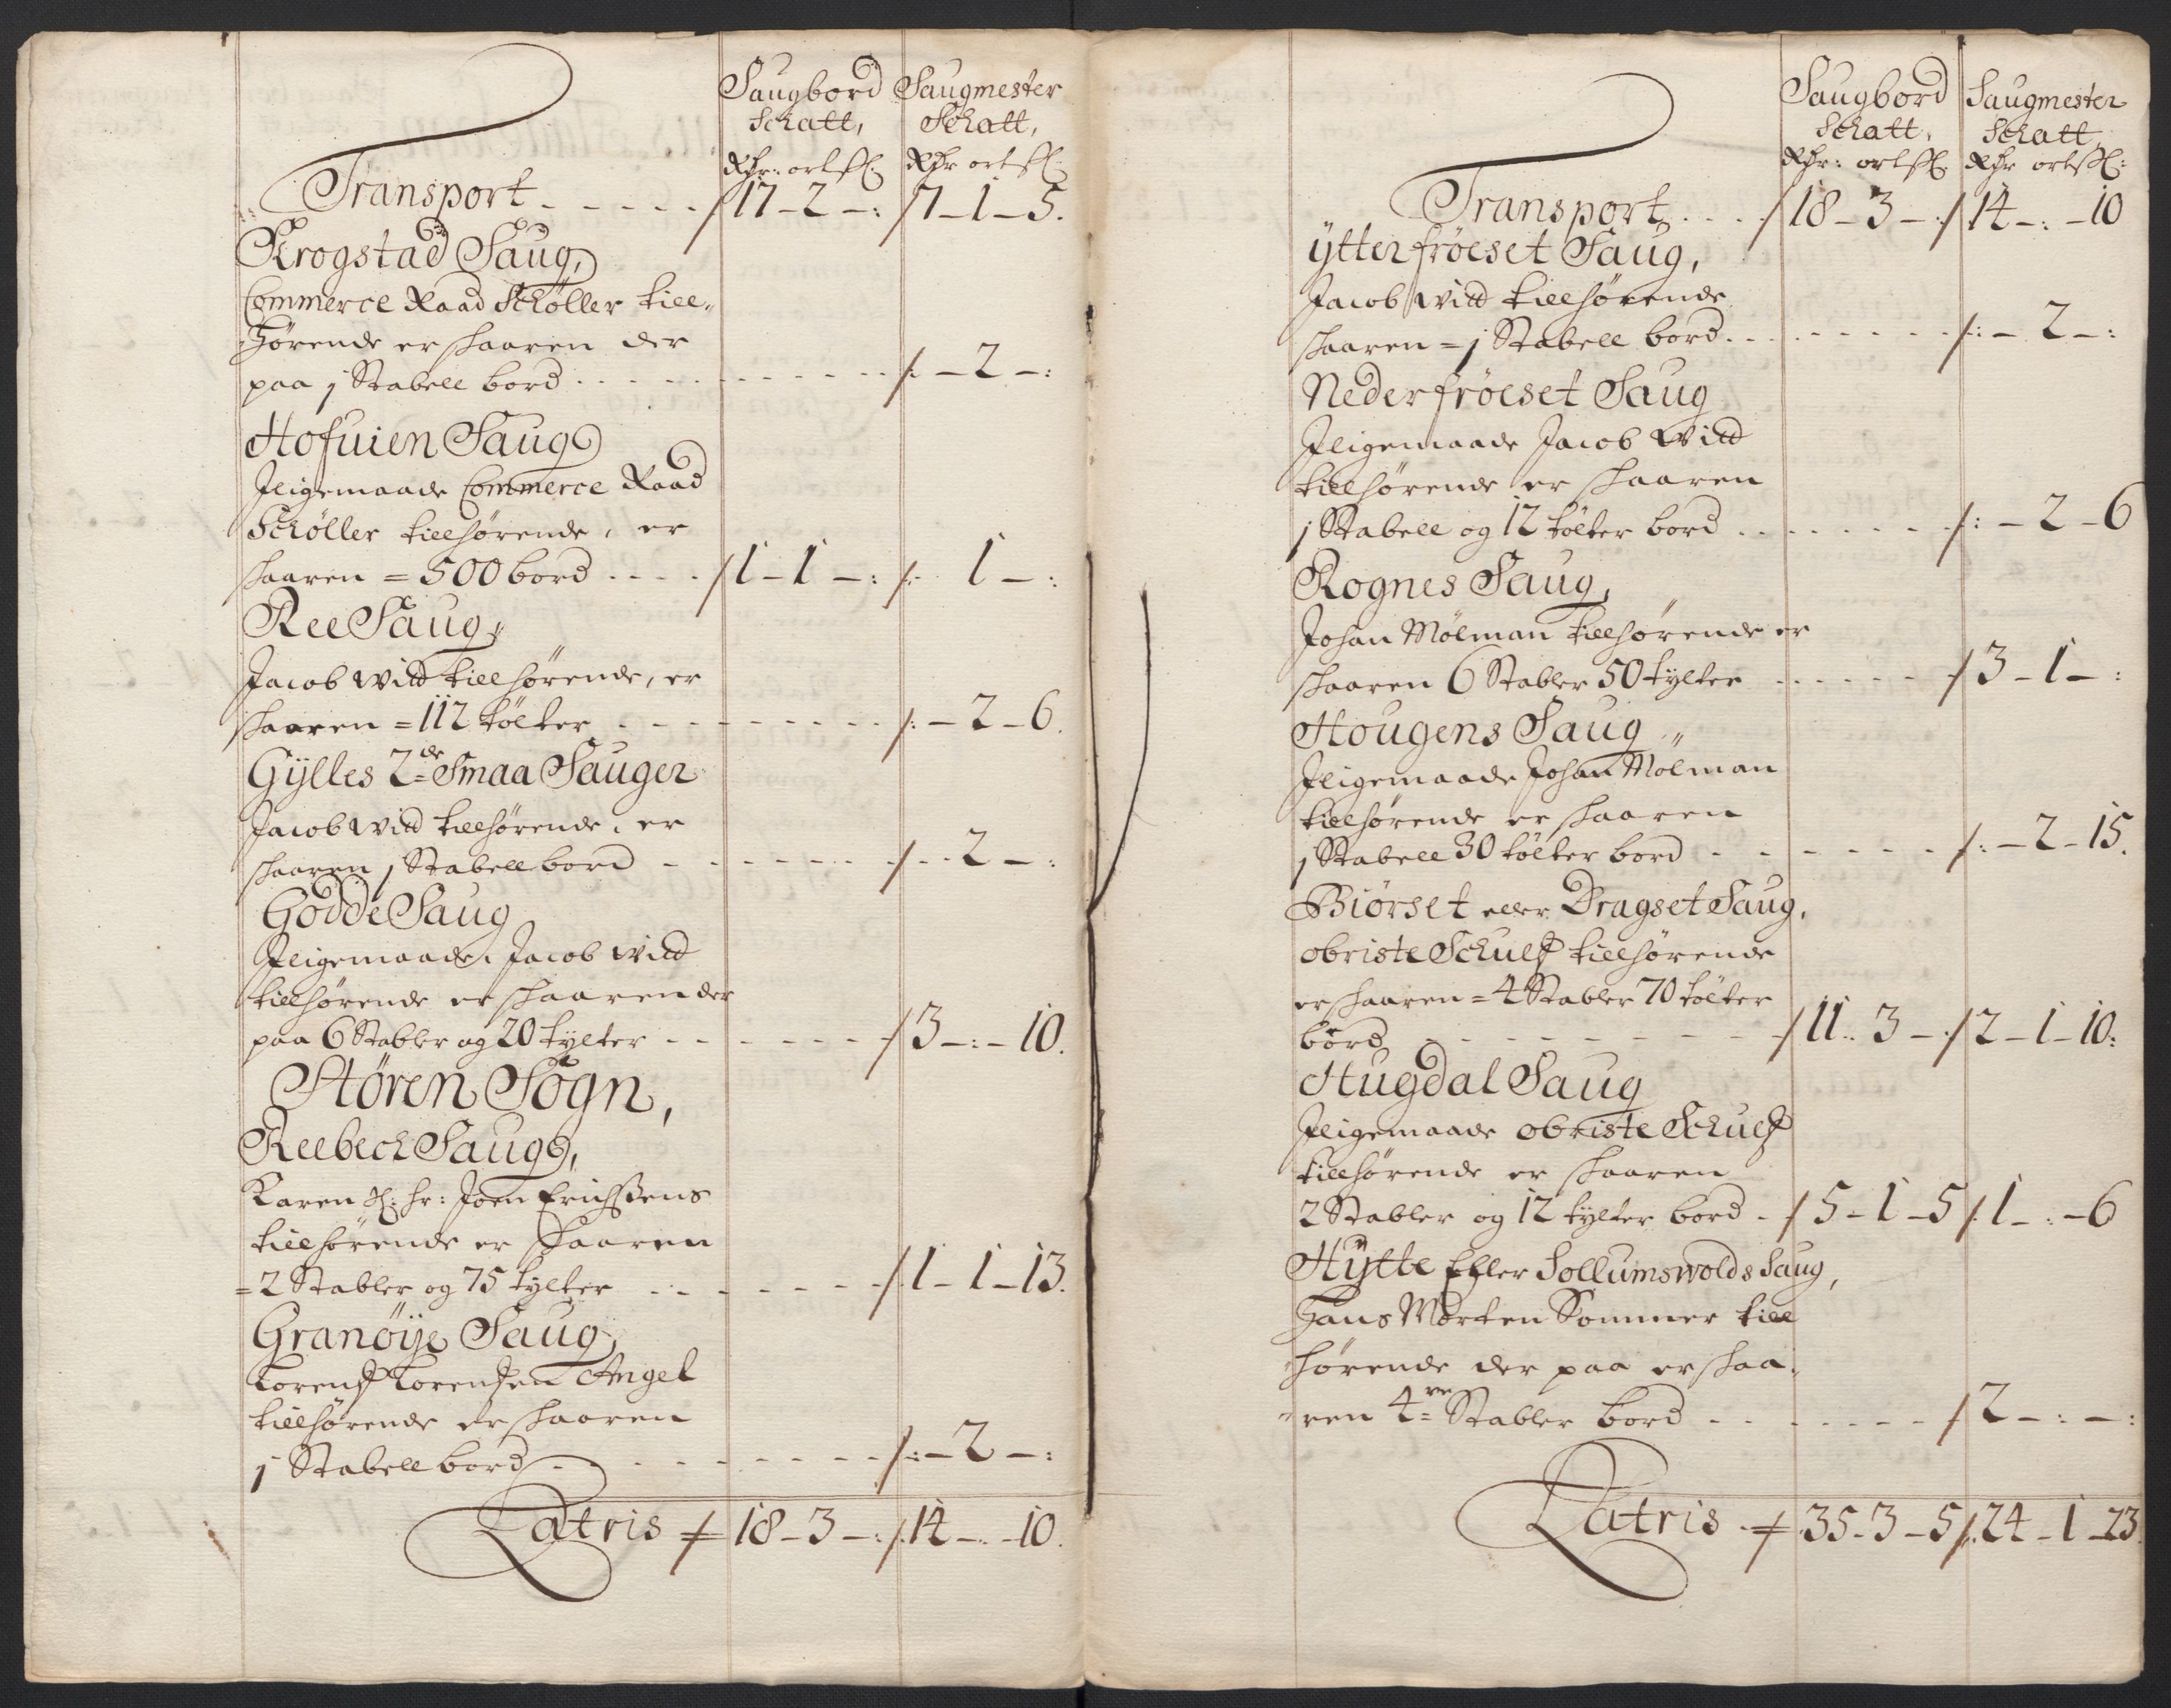 Saugbord Saugmester
Schatt, Schatt,
Rdr: ort sk. Rdr ort sk:
Transport - - - - - 17 - 2 - : 7 - 1 - 5.
Krogstad Saug,
Commerce Raad Schøller till-
hørende er skaaren der
paa j Stabell bord - - - - - : - 2 - :
Hofuien Saug
Jligemaade Commerce Raad
Schøller tillhørende, er
skaaren = 500 bord - - - - 1 - 1 - : : 1 - :
Ree Saug,,
Jacob Witt tillhørende, er
skaaren = 112 tölter - - - - - : - 2 - 6.
Gÿlles 2de Smaa Sauger
Jacob Witt tillhørende, er
skaaren j Stabell bord - - - - - 2 - :
Godde Saug
Jligemaade Jacob Witt
tillhørende er skaaren der
paa 6 Stabler og 20 tÿlter - - - - - 3 - : - 10.
Støren Sogn,
Reebech Saug,
Karen Sl: hr: Joen Erichssens
tillhørende er skaaren
= 2 Stabler og 75 tÿlter - - - - - 1 - 1 - 13.
Granöÿe Saug,
Lorentz Lorentzen Angel
tillhørende er skaaren
j Stabell bord - - - - - : - 2 - :
Latris 18 - 3 - : 14 - : - 10.
Saugbord Saugmester
Schatt, Schatt,
Rdr: ort sk. Rdr ort sk:
Transport - - - - 18 - 3 - 14 - : - 10
ÿtter frøeset Saug,
Jacob Witt tillhørende
skaaren = j Stabell bord - - - - - : - 2 - :
Neder frøeset Saug
Jligemaade Jacob Witt
tillhørende er skaaren
j Stabell og 12 tölter bord - - - - - : - 2 - 6
Rognes Saug,
Johan Mölman tillhørende er
skaaren 6 Stabler 50 tÿlter - - - - - 3 - 1 - :
Hougens Saug,,
Jligemaade Johan Mölman
tillhørende er skaaren
j Stabell 30 tölter bord - - - - - : - 2 - 15.
Biörset eller Dragset Saug,
obriste Schultz tillhørende
er skaaren = 4 Stabler 70 tölter
bord - - - - - 11 - 3 - 2 - 1 - 10:
Hugdal Saug
Jligemaade obriste Schultz
tillhørende er skaaren
2 Stabler og 12 tÿlter bord - 5 - 1 - 5 1 - : - 6
Hÿtte Eller Sollumswolds Saug,
Hans Morten Sommer till
hørende der paa er skaa-
ren 4re Stabler bord - - - - - 2 - : - :
Latris 35 - 3 - 5 24 - 1 - 23